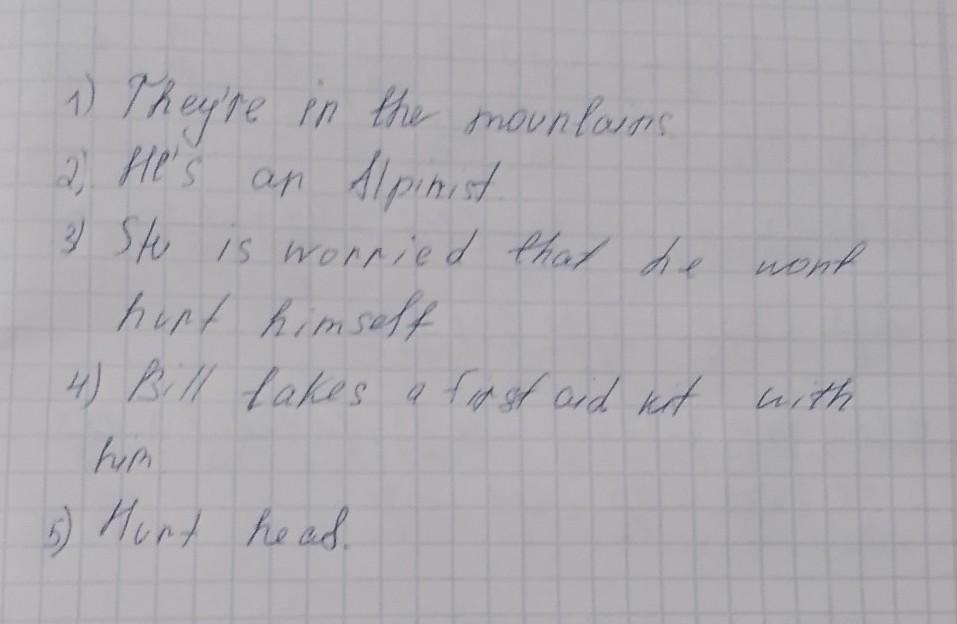 1) They're in the mountains
2) He's an Alpinist.
3) Stu is worried that he wont
hurt himself
4) Bill takes a first aid kit with
him.
5) Hurt head.